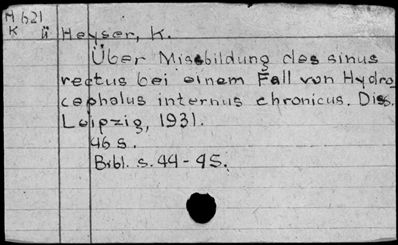 M 621
K ü Heyser, K.
Über Missbildung des sinus
rectus bei einem Fall von Hydro-
cephalus internus chronicus. Diss.
Leipzig, 1931.
46 S.
Bibl. s. 44-45.